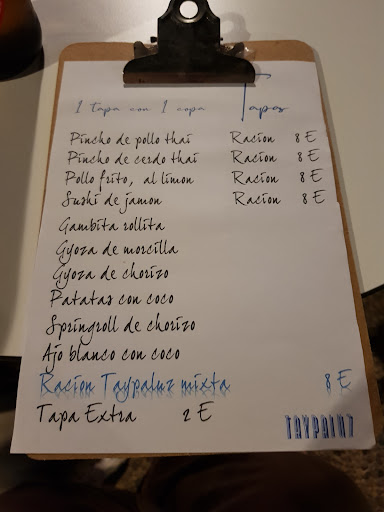 1 tapa con 1 copa Tapas
Pincho de pollo thai Racion 8 E
Pincho de cerdo thai Racion 8 E
Pollo frito, al limon Racion 8 E
Sushi de jamon Racion 8 E
Gambita rollita
Gyoza de morcilla
Gyoza de chorizo
Patatas con coco
Springroll de chorizo
Ajo blanco con coco
Racion Taypaluz mixta 8 E
Tapa Extra 2 E
TAYPALUZ